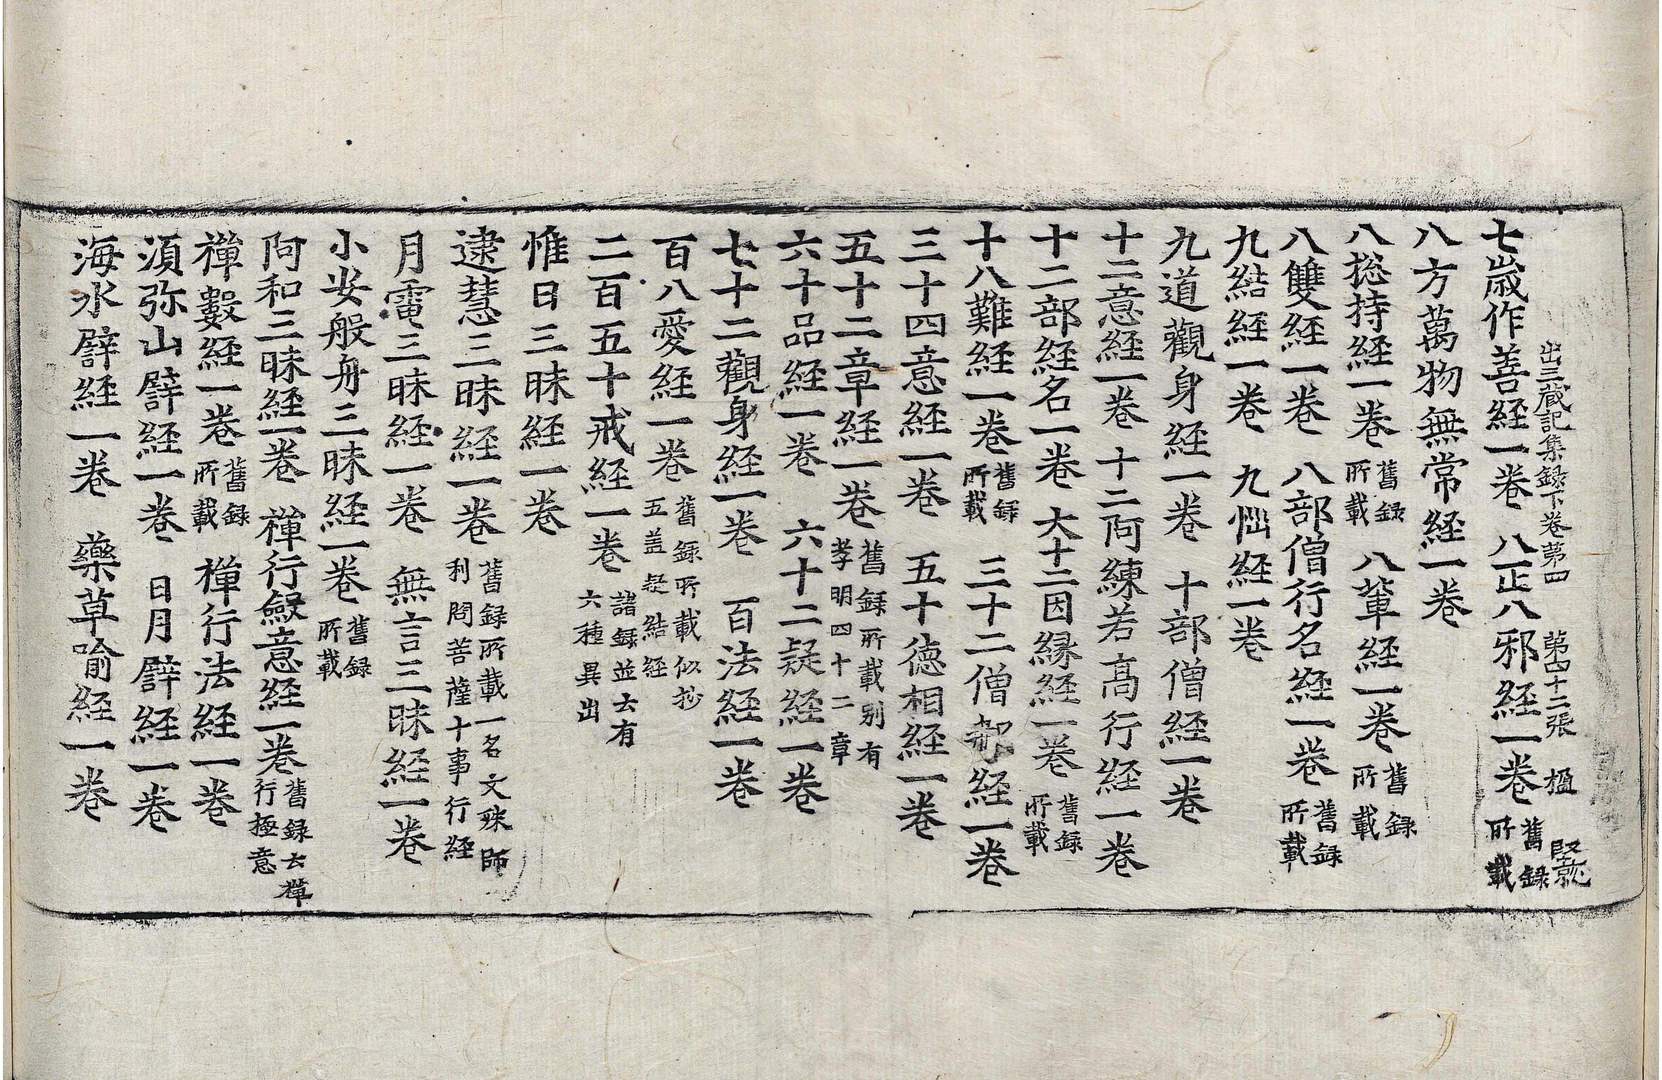 出三蔵記集録下卷第四　第四十二張　楹
七歳作善経一卷　八正八邪経一卷舊録所載
八方萬物無常経一卷
八揔持経一卷舊録所載　八輩経一卷舊録所載
八雙経一卷　八部僧行名経一卷舊録所載
九結経一卷　九惱経一卷
九道觀身経一卷　十部僧経一卷
十二意経一卷　十二阿練若高行経一卷
十二部経名一卷　大十二因縁経一卷舊録所載
十八難経一卷舊録所載　三十二僧那経一卷
三十四意経一卷　五十德相経一卷
五十二章経一卷舊録所載别有孝明四十二章
六十品経一卷　六十二疑経一卷
七十二觀身経一卷　百法経一卷
百八愛経一卷舊録所載似抄五盖疑結経
二百五十戒経一卷諸録並云有六種異出
惟日三昧経一卷
逮慧三昧経一卷舊録所載一名文殊師利問菩薩十事行経
月電三昧経一卷　無言三昧経一卷
小安般舟三昧経一卷舊録所載
阿和三昧経一卷　禪行斂意経一卷舊録云禪行極意
禪數経一卷舊録所載　禪行法経一卷
湏弥山譬経一卷　日月譬経一卷
海水譬経一卷　藥草喻経一卷